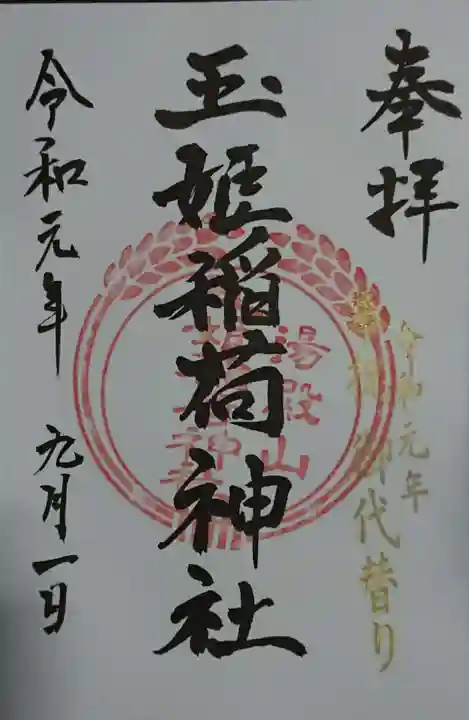 奉拝
令和元年
御代替り
玉姫稲荷神社
湯殿山
神社
令和元年 九月一日